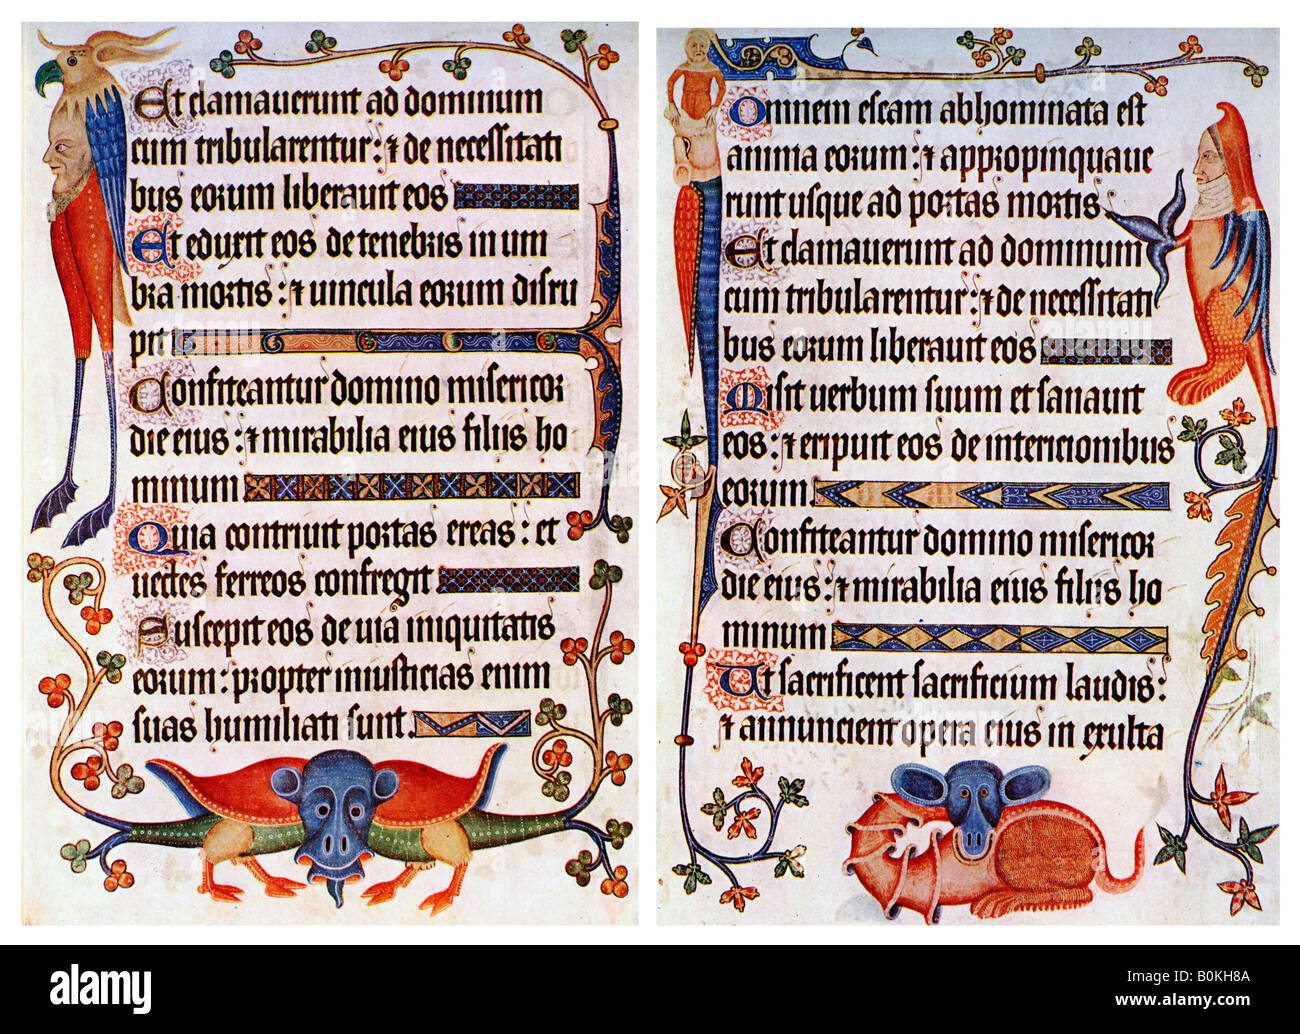 Et clamauerunt ad dominum
cum tribularentur: ⁊ de necessitati
bus eorum liberauit eos
Et eduxit eos de tenebris in um
bra mortis: ⁊ uincula eorum disru
pit
Confiteantur domino misericor
die eius: ⁊ mirabilia eius filiis ho
minum
Quia contriuit portas ereas: et
uectes ferreos confregit
Suscepit eos de uia iniquitatis
eorum: propter iniusticias enim
suas humiliati sunt.
Omnem escam abhominata est
anima eorum: ⁊ appropinquaue
runt usque ad portas mortis
Et clamauerunt ad dominum
cum tribularentur: ⁊ de necessitati
bus eorum liberauit eos
Misit uerbum suum et sanauit
eos: ⁊ eripuit eos de intericionibus
eorum.
Confiteantur domino misericor
die eius: ⁊ mirabilia eius filiis ho
minum
Ut sacrificent sacrificium laudis:
⁊ annuncient opera eius in exulta
alamy
Image ID: B0KH8A
www.alamy.com